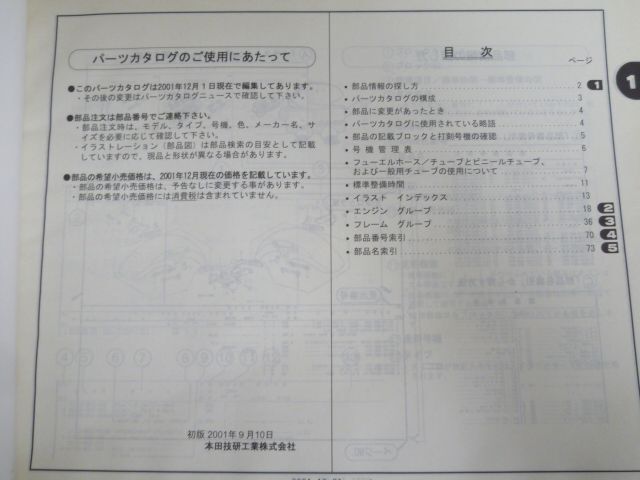 パーツカタログのご使用にあたって
●このパーツカタログは2001年12月1日現在で編集してあります。
・その後の変更はパーツカタログニュースで確認して下さい。
●部品注文は部品番号でご連絡下さい。
・部品注文時は、モデル、タイプ、号機、色、メーカー名、サ
イズを必要に応じて確認して下さい。
・イラストレーション（部品図）は部品検索の目安として記載
していますので、現品と形状が異なる場合があります。
●部品の希望小売価格は、2001年12月現在の価格を記載しています。
・部品の希望小売価格は、予告なしに変更する事があります。
・部品の希望小売価格には消費税は含まれていません。
初版 2001年9月10日
本田技研工業株式会社
目　次
ページ
• 部品情報の探し方 2 1
• パーツカタログの構成 3
• 部品に変更があったとき 4
• パーツカタログに使用されている略語 4
• 部品の記載ブロックと打刻号機の確認 5
• 号 機 管 理 表 6
• フューエルホース／チューブとビニールチューブ、
および一般用チューブの使用について 7
• 標準整備時間 11
• イラスト　インデックス 13
• エンジン　グループ 18 2
• フレーム　グループ 36 3
• 部品番号索引 70 4
• 部品名索引 73 5
1